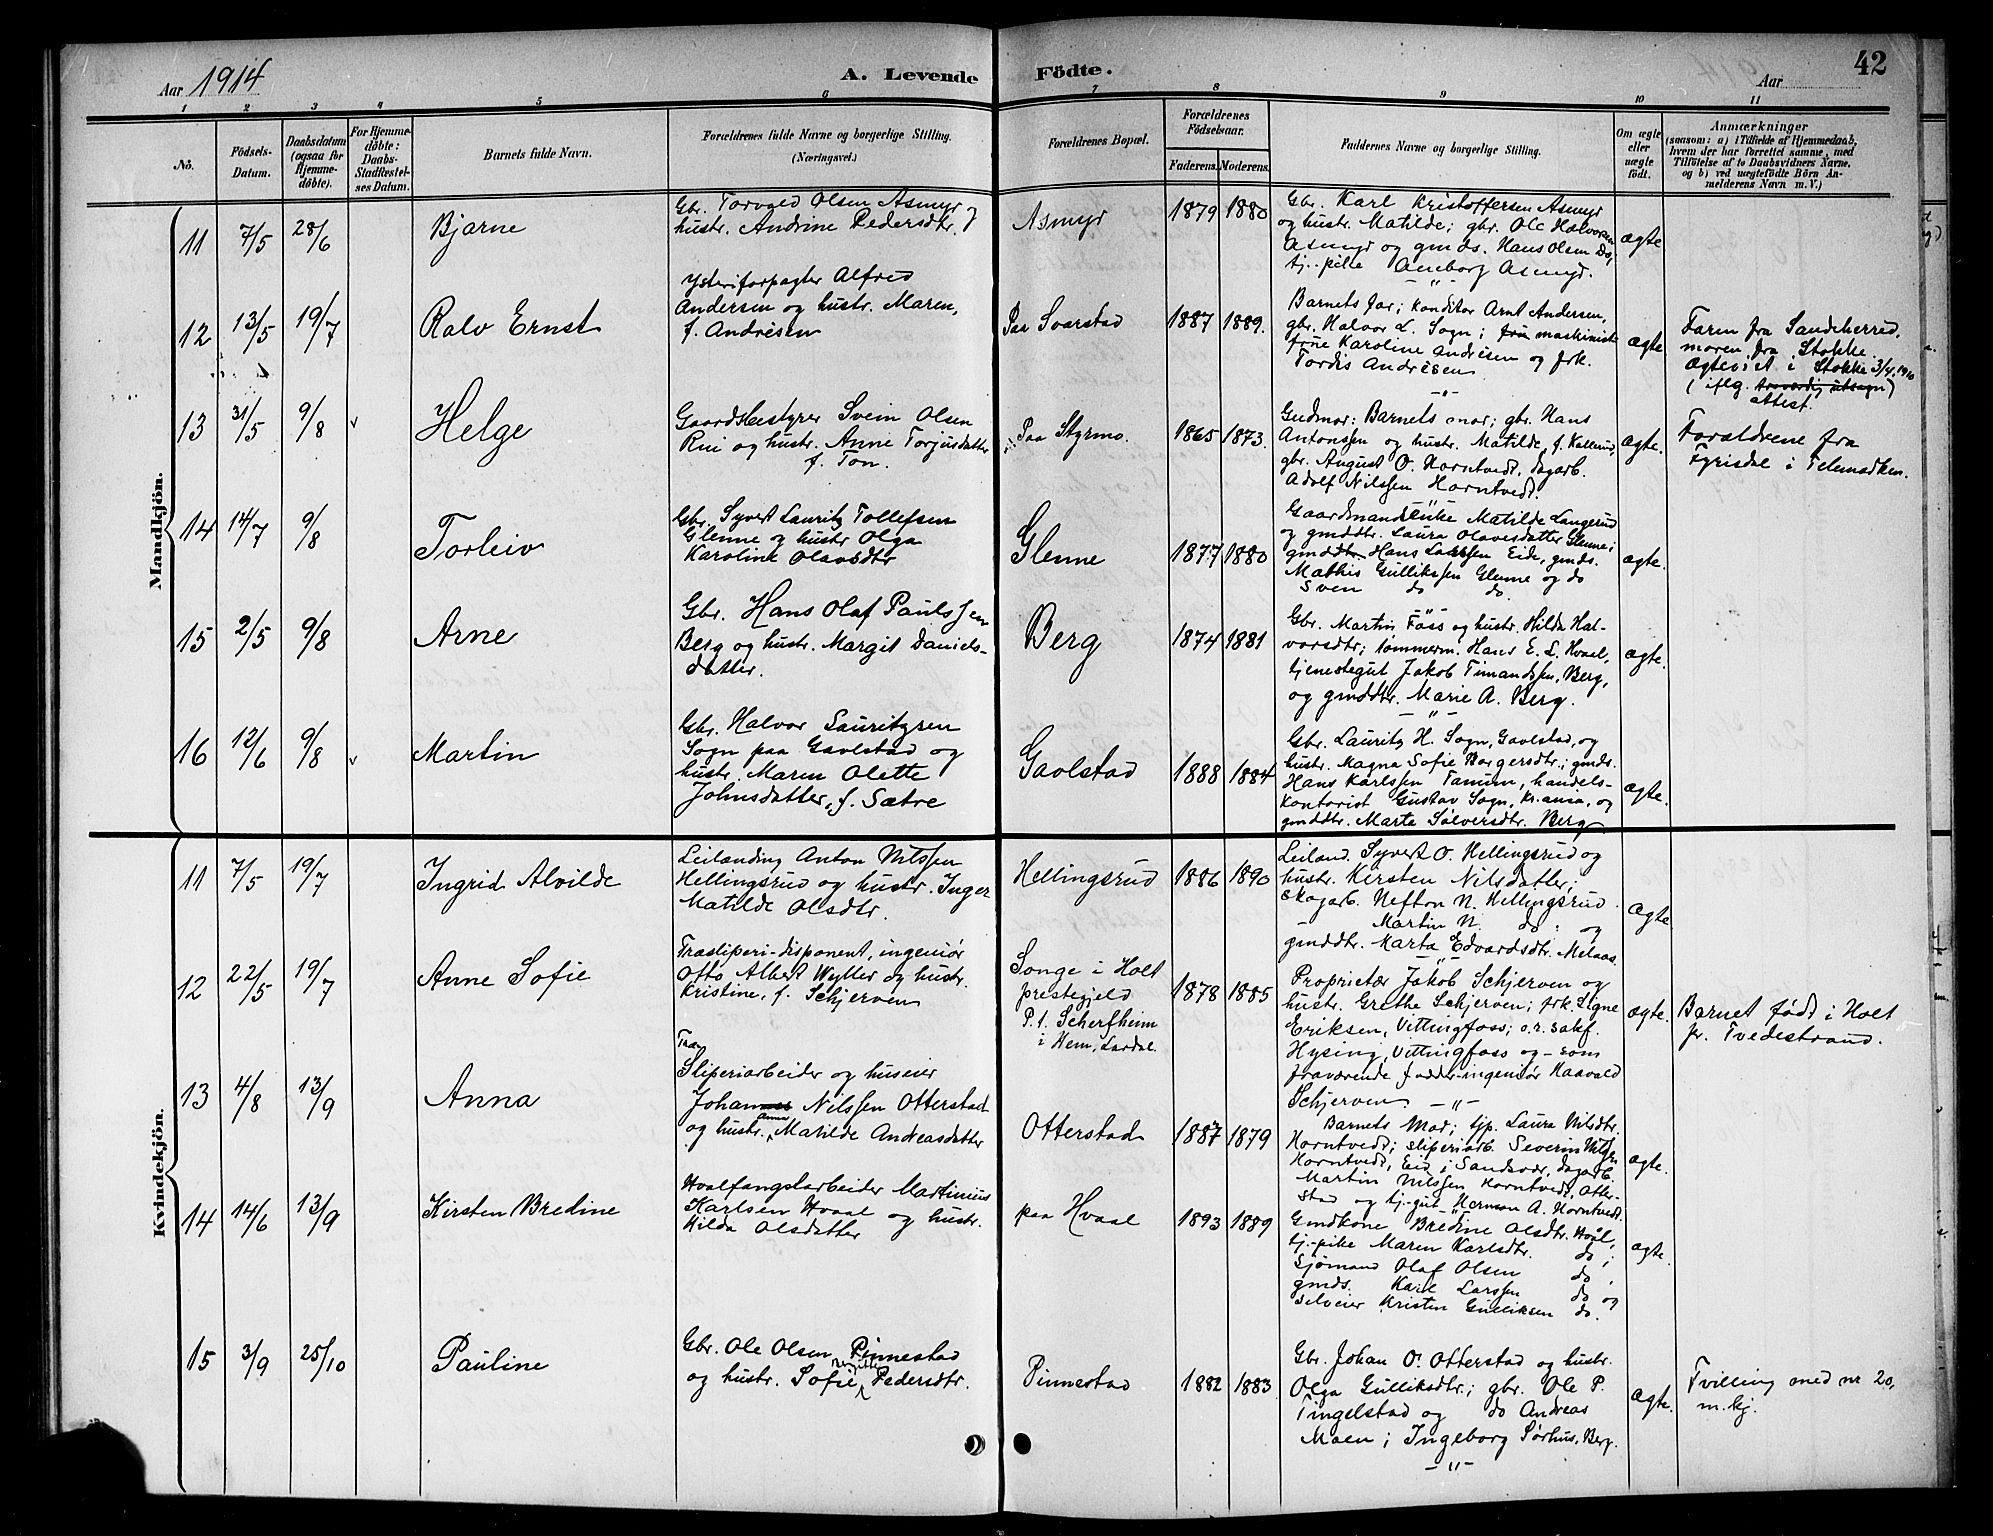 Aar 1914
A. Levende
Födte.
Aar
42
1 2 3 4 5 6 7 8 9 10 11
Nö.
Födsels-
Datum.
Daabsdatum
(ogsaa for
Hjemme-
döbte).
For Hjemme-
döbte:
Daabs-
Stadfæstel-
ses Datum.
Barnets fulde Navn.
Forældrenes fulde Navne og borgerlige Stilling.
(Næringsvei.)
Forældrenes Bopæl.
Forældrenes
Födselsaar.
Faderens.
Moderens.
Faddernes Navne og borgerlige Stilling.
Om ægte
eller
uægte
födt.
Anmærkninger
(saasom: a) i Tilfælde af Hjemmedaab,
hvem der har forrettet samme, med
Tilföielse af to Daabsvidners Navne,
og b) ved uægtefödte Börn An-
melderens Navn m. V.)
Mandkjön.
11 7/5 28/6 Bjarne
Gbr. Torvald Olsen Asmyr
hustr. Andrine Pedersdtr.
Asmyr 1879 1880
Gbr. Karl Kristoffersen Asmyr
og hustr. Matilde; gbr. Ole Halvorsen
Asmyr og gmds. Hans Olsen Do,
tj.-pike Aneborg Asmyr.
ægte
12 13/5 19/7 Ralv Ernst
Ysteriforpagter Alfred
Andersen og hustr. Maren,
f. Andrésen
Paa Svarstad 1887 1889.
Barnets far; konditor Arnt Andersen,
gbr. Halvor L. Sogn; frue maskinist
frue Karoline Andrésen og frk.
Tordis Andrésen
ægte.
Faren fra Sandeherred,
moren fra Stokke.
Ægteviet i Stokke 3/4. 1910
(iflg. troværdig utsagn)
attest.
13 31/5 9/8 v Helge
Gaardsbestyrer Svein Olsen
Rui og hustr. Anne Torjusdatter
f. Ton.
Paa Styrmo. 1865 1873.
Gudmor: Barnets mor; gbr. Hans
Antonssen og hustr. Matilde, f. Kallerud,
gbr. August O. Horntvedt, dagarb.
Adolf Nilssen Horntvedt.
ægte.
Forældrene fra
Fyrisdal i Telemarken.
14 14/7 9/8 Torleiv
Gbr. Syvert Lauritz Tollefsen
Glenne og hustr Olga
Karoline Olavsdtr
Glenne 1877 1880
Gaardmandenke Matilde Langerud
og gmddtr. Laura Olavesdatter Glenne;
gmddtr Hans Larssen Eide, gmds.
Mathis Gullikssen Glenne og do
Sven do do.
ægte.
15 2/5 9/8 Arne
Gbr. Hans Olaf Paulssen
Berg og hustr. Margit Daniels-
datter.
Berg 1874 1881
Gbr. Martin Foss og hustr. Hilda Hal-
vorsdtr; tømmerm. Hans E. L. Hvaal,
tjenestegut Jakob Timandssen, Berg,
og gmddtr. Marie A. Berg.
ægte.
16 12/6 9/8 v Martin
Gbr. Halvor Lauritzsen
Sogn paa Gavlstad og
hustr. Maren Olette
Johnsdatter, f. Sætre
Gavlstad 1888 1884
Gbr. Lauritz H. Sogn, Gavlstad, og
hustr. Magna Sofie Borgersdtr; gmds.
Hans Karlssen Tanum, handels-
kontorist Gustav Sogn, Kr.ania, og
gmddtr. Marta Sølversdtr. Berg
ægte.
Kvindekjön.
11 7/5 19/7 Ingrid Alvilde
Leilænding Anton Nilssen
Hellingsrud og hustr. Inger
Matilde Olsdtr.
Hellingsrud 1886 1890
Leilænd. Syvert O. Hellingsrud og
hustr. Kirsten Nilsdatter;
skogarb. Nefton N. Hellingsrud
Martin N. do. og
gmddtr. Marta Edvardsdtr. Melaas.
ægte
12 22/5 19/7 Anne Sofie
Træsliperi-disponent, ingeniør
Otto Albert Wyller og hustr.
Kristine, f. Schjerven
Songe i Holt
prestegjeld
P. t. Scherfheim
i Hem, Lardal.
1878 1885
Proprietær Jakob Schjerven og
hustr. Grethe Schjerven; frk. Signe
Eriksen, Vittingfoss; o.r.sakf.
Hysing, Vittingfoss og - som
fraværende fadder - ingeniør Haavald
Schjerven.
ægte.
Barnet født i Holt
pr. Tvedestrand.
13 4/8 13/9 Anna
Træ
Sliperiarbeider og huseier
Johannes Nilssen Otterstad
og hustr. Anna Matilde Andreasdatter
Otterstad 1887 1879
Barnets Mor; tjp. Laura Nilsdtr.
Horntvedt; sliperiarb. Severin Nilssen
Horntvedt, Eid i Sandsvær, dagarb.
Martin Nilssen Horntvedt, Otter-
stad og tj.-gut Herman A. Horntvedt.
ægte.
14 14/6 13/9 Kirsten Bredine
Hvalfangstarbeider Martinius
Karlsen Hvaal og hustr.
Hilda Olsdatter
paa Hvaal 1893 1889
Gmdkone Bredine Olsdtr. Hvål,
tj.-pike Maren Karlsdtr. do;
Sjømand Olaf Olsen do,
gmds. Karl Larssen do og
selveier Kristen Gulliksen do.
ægte.
15 3/9 25/10 Pauline
Gbr. Ole Olsen Pinnestad
og hustr. Sofie Birgitte Pedersdtr.
Pinnestad 1882 1883.
Gbr. Johan O. Otterstad og hustr.
Olga Gulliksdtr.; gbr. Ole P.
Tingelstad og do Andreas
Moen; Ingeborg Sørhus, Berg.
ægte.
Tvilling med nr 20,
m. kj.